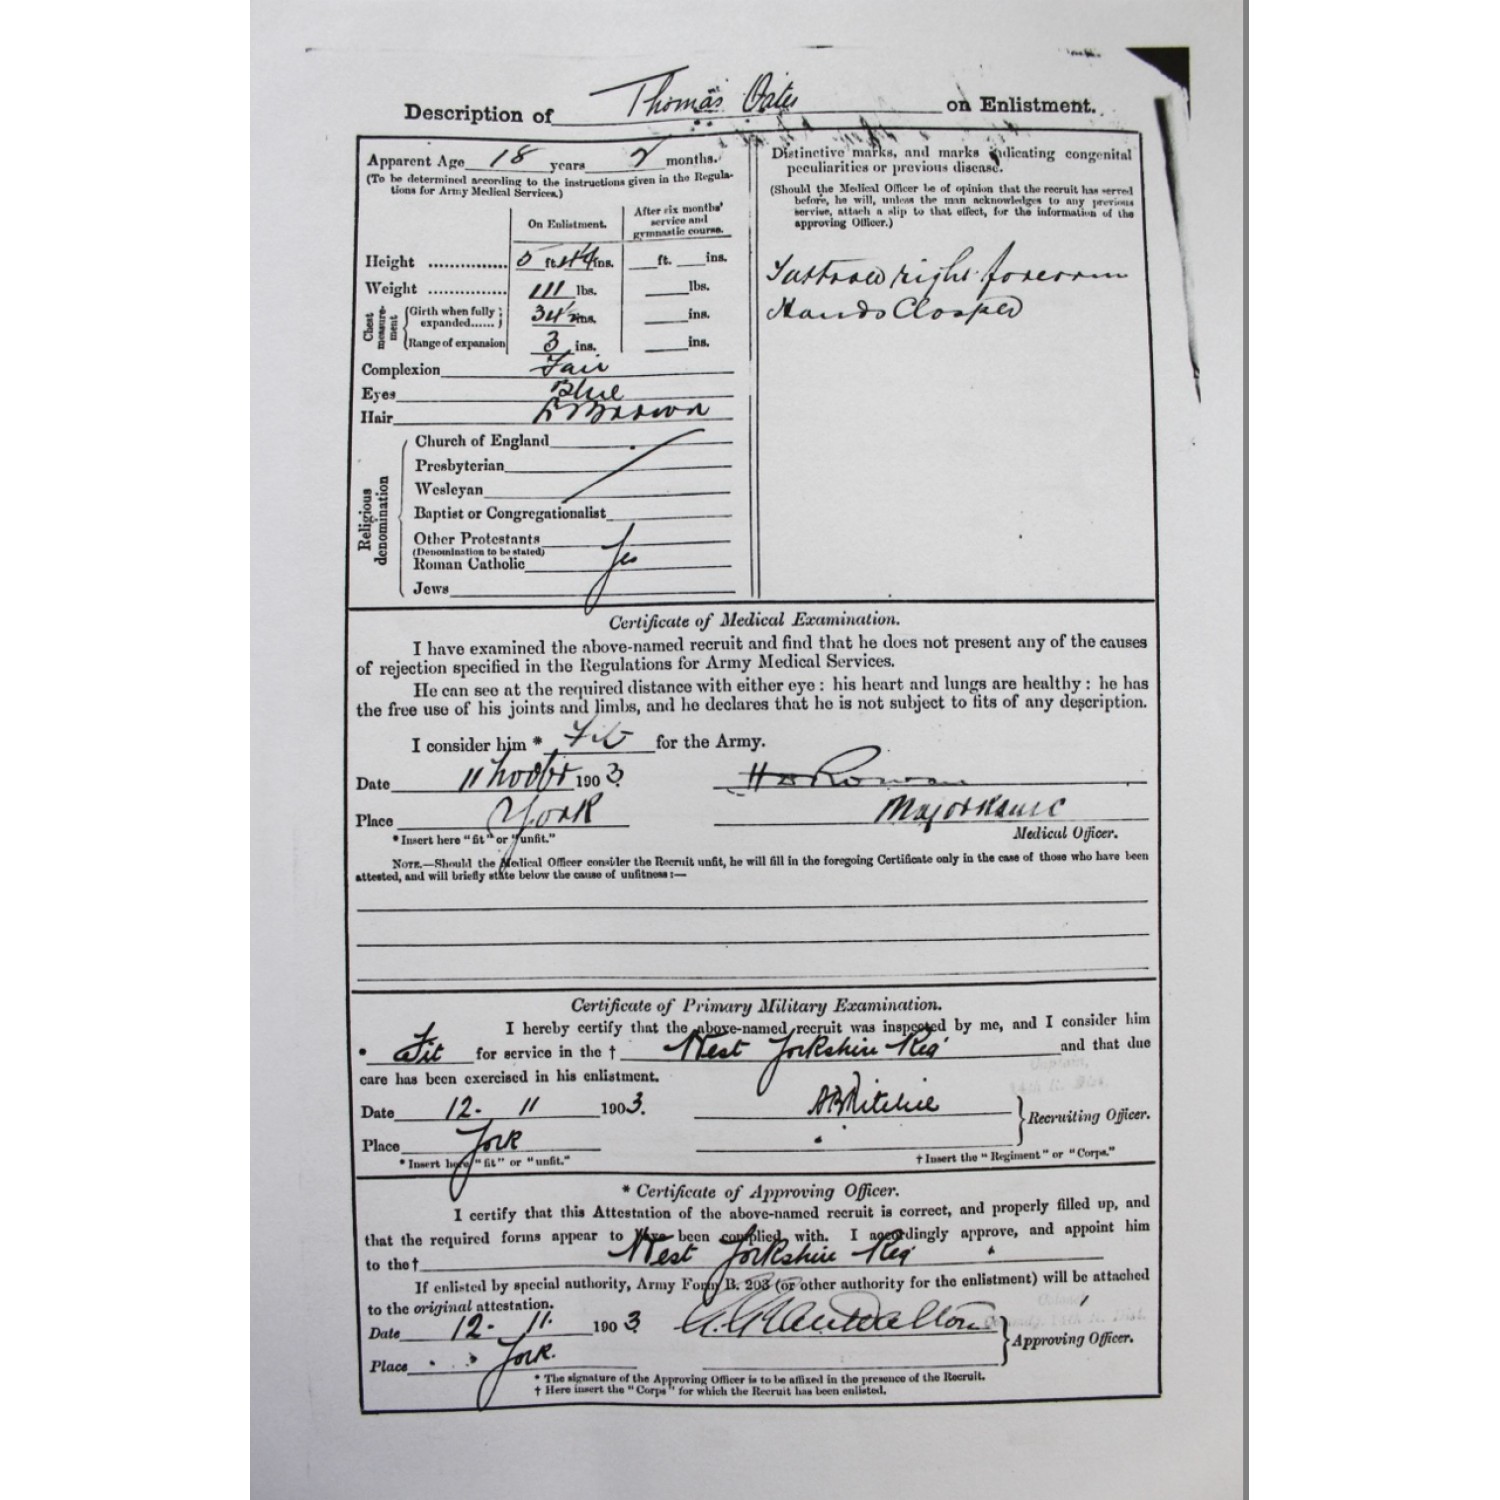 Description of Thomas Oates on Enlistment.
Apparent Age 18 years 2 months.
(To be determined according to the instructions given in the Regula-
tions for Army Medical Services.)
On Enlistment.
After six months'
service and
gymnastic course.
Height 5 ft. ins. ft. ins.
Weight 111 lbs. lbs.
Chest measure-ment
Girth when fully
expanded...... 34 ins. ins.
Range of expansion 3 ins. ins.
Complexion Fair
Eyes Blue
Hair Brown
Religious denomination
Church of England
Presbyterian
Wesleyan
Baptist or Congregationalist
Other Protestants
(Denomination to be stated)
Roman Catholic Yes
Jews
Distinctive marks, and marks indicating congenital
peculiarities or previous disease.
(Should the Medical Officer be of opinion that the recruit has served
before, he will, unless the man acknowledges to any previous
service, attach a slip to that effect, for the information of the
approving Officer.)
right forearm
Hands Clasped
Certificate of Medical Examination.
I have examined the above-named recruit and find that he does not present any of the causes
of rejection specified in the Regulations for Army Medical Services.
He can see at the required distance with either eye : his heart and lungs are healthy : he has
the free use of his joints and limbs, and he declares that he is not subject to fits of any description.
I consider him * Fit for the Army.
Date 11 1903
Place York
Major
Medical Officer.
* Insert here "fit" or "unfit."
NOTE.—Should the Medical Officer consider the Recruit unfit, he will fill in the foregoing Certificate only in the case of those who have been
attested, and will briefly state below the cause of unfitness :—
Certificate of Primary Military Examination.
I hereby certify that the above-named recruit was inspected by me, and I consider him
* Fit for service in the † West Yorkshire Reg and that due
care has been exercised in his enlistment.
Date 12. 11 1903. A B Ritchie
Recruiting Officer.
Place York
* Insert here "fit" or "unfit." † Insert the "Regiment" or "Corps."
* Certificate of Approving Officer.
I certify that this Attestation of the above-named recruit is correct, and properly filled up, and
that the required forms appear to have been complied with. I accordingly approve, and appoint him
to the † West Yorkshire Reg
If enlisted by special authority, Army Form B. 203 (or other authority for the enlistment) will be attached
to the original attestation.
Date 12. 11. 1903
Approving Officer.
Place York.
* The signature of the Approving Officer is to be affixed in the presence of the Recruit.
† Here insert the "Corps" for which the Recruit has been enlisted.